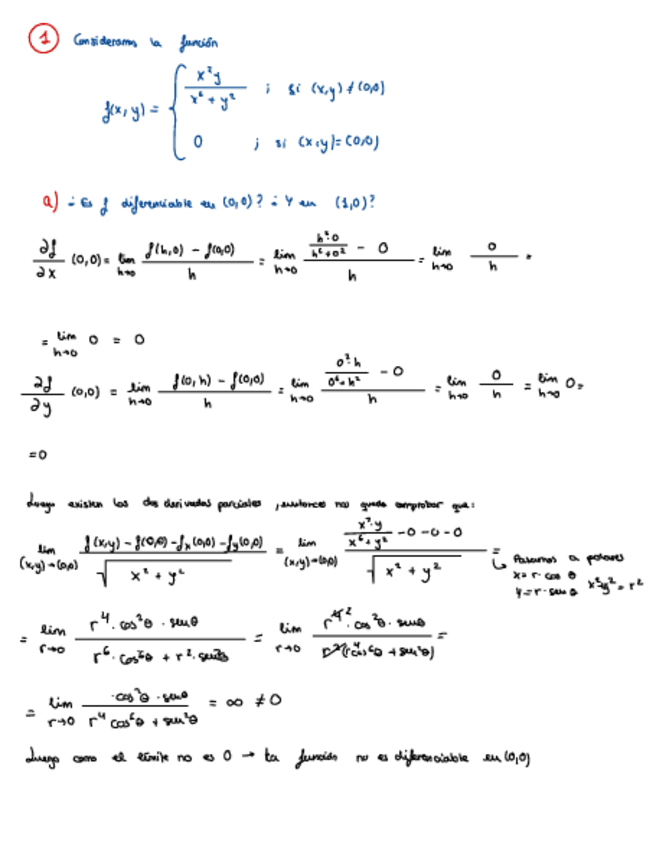 1 Consideramos la función
f(x, y) = { x²y / (x⁶ + y²) ; si (x,y) ≠ (0,0)
0 ; si (x,y) = (0,0)
a) ¿Es f diferenciable en (0,0)? ¿Y en (1,0)?
∂f/∂x (0,0) = lim h→0 (f(h,0) − f(0,0)) / h = lim h→0 (h²·0 / (h⁶+0²) − 0) / h = lim h→0 0/h =
= lim h→0 0 = 0
∂f/∂y (0,0) = lim h→0 (f(0,h) − f(0,0)) / h = lim h→0 (0²·h / (0⁶+h²) − 0) / h = lim h→0 0/h = lim h→0 0 =
= 0
Luego existen las dos derivadas parciales, entonces nos queda comprobar que:
lim (x,y)→(0,0) (f(x,y) − f(0,0) − fx(0,0) − fy(0,0)) / √(x² + y²) = lim (x,y)→(0,0) (x²·y / (x⁶+y²) − 0 − 0 − 0) / √(x² + y²) =
Pasamos a polares
x = r·cos θ
y = r·sen θ x²+y² = r²
= lim r→0 (r⁴·cos²θ·senθ) / (r⁶·cos⁶θ + r²·sen²θ) = lim r→0 (r⁴ ²·cos²θ·senθ) / (r²(r⁴cos⁶θ + sen²θ)) =
= lim r→0 (·cos²θ·senθ) / (r⁴cos⁶θ + sen²θ) = ∞ ≠ 0
Luego como el límite no es 0 → La función no es diferenciable en (0,0)